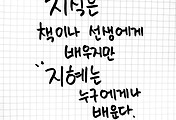 "지식은
책이나 선생에게
배우지만
"지혜는
누구에게나
배운다.